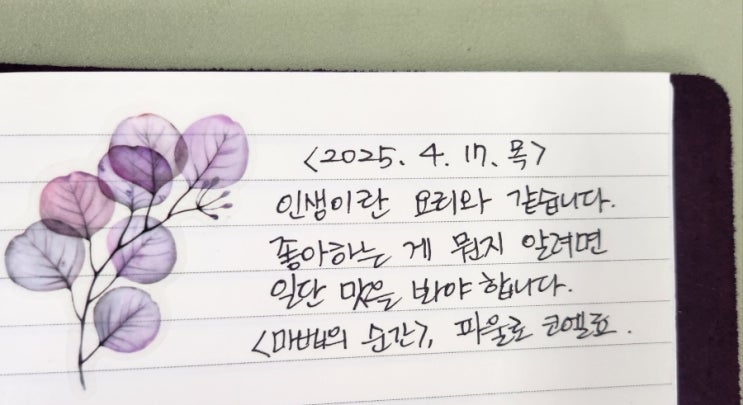 <2025. 4. 17. 목>
인생이란 요리와 같습니다.
좋아하는 게 뭔지 알려면
일단 맛을 봐야 합니다.
<마법의 순간>, 파울로 코엘료.